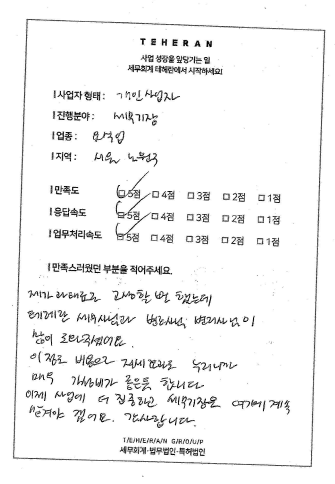 TEHERAN
사업 성장을 앞당기는 일
세무회계 테헤란에서 시작하세요!
사업자 형태 : 개인사업자
진행분야 : 세무기장
업종 : 요식업
지역 : 서울 노원구
만족도 5점 4점 3점 2점 1점
응답속도 5점 4점 3점 2점 1점
업무처리속도 5점 4점 3점 2점 1점
만족스러웠던 부분을 적어주세요.
제가 고생할 뻔 했는데
테헤란 세무사님과 변호사님, 변리사님이
많이 도와주셨어요.
이 정도 비용으로 누리니까
매우 가성비가 좋은듯 합니다
이제 사업에 더 집중하고 세무기장은 여기에 계속
맡겨야 겠어요. 감사합니다.
TEHERAN GROUP
세무회계·법무법인·특허법인